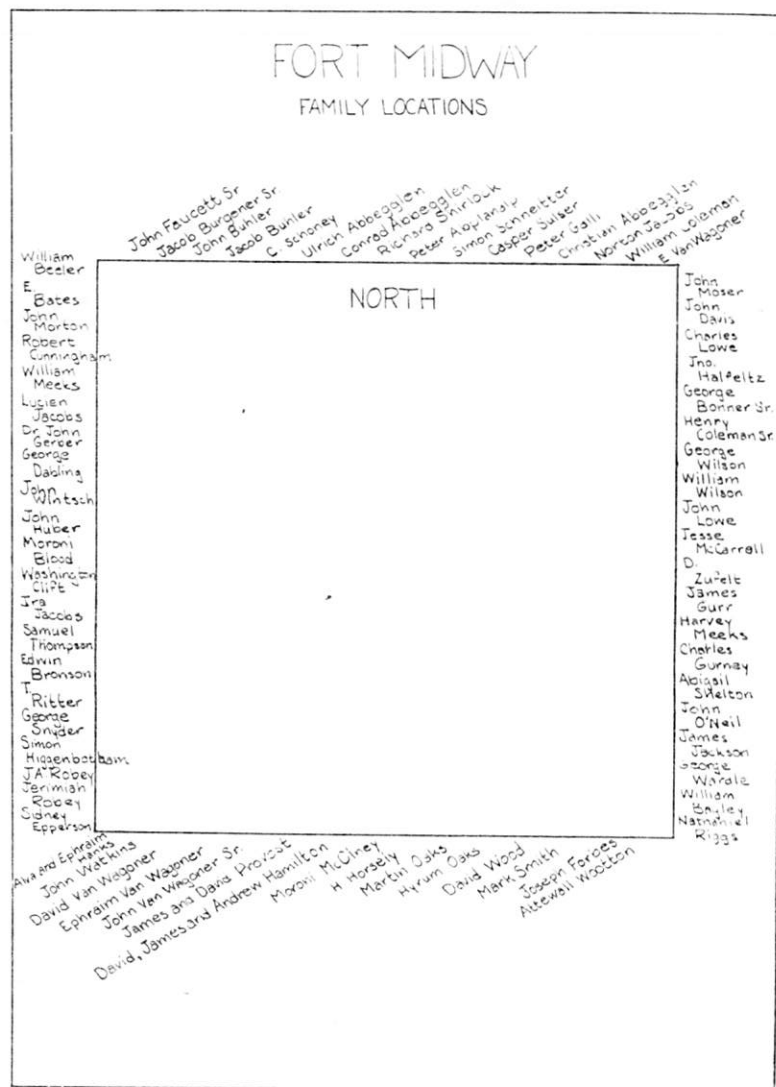 FORT MIDWAY
FAMILY LOCATIONS
John Faucett Sr
Jacob Burgener Sr.
John Buhler
Jacob Buhler
C. Schoney
Ulrich Abbegglen
Conrad Abbegglen
Richard Shirlock
Peter Abplanalp
Simon Schneitter
Casper Sulser
Peter Galli
Christian Abbegglen
Norton Jacobs
William Coleman
E Van Wagoner
William
Beeler
E.
Bates
John
Morton
Robert
Cunningham
William
Meeks
Lucien
Jacobs
Dr. John
Gerber
George
Dabling
John
Wintsch
John
Huber
Moroni
Blood
Washington
Clift
Ira
Jacobs
Samuel
Thompson
Edwin
Bronson
T.
Ritter
George
Snyder
Simon
Higgenbotham
J.A. Robey
Jerimiah
Robey
Sidney
Epperson
NORTH
John
Moser
John
Davis
Charles
Lowe
Jno.
Halfeltz
George
Bonner Sr.
Henry
Coleman Sr.
George
Wilson
William
Wilson
John
Lowe
Jesse
McCarrall
D.
Zufelt
James
Gurr
Harvey
Meeks
Charles
Gurney
Abigail
Shelton
John
O'Neil
James
Jackson
George
Wardle
William
Bayley
Nathaniel
Riggs
Alva and Ephraim
Hanks
John Watkins
David Van Wagoner
Ephraim Van Wagoner
John Van Wagoner Sr.
James and David Provost
David, James and Andrew Hamilton
Moroni McOlney
H Horsely
Martin Oaks
Hyrum Oaks
David Wood
Mark Smith
Joseph Forbes
Attewall Wootton